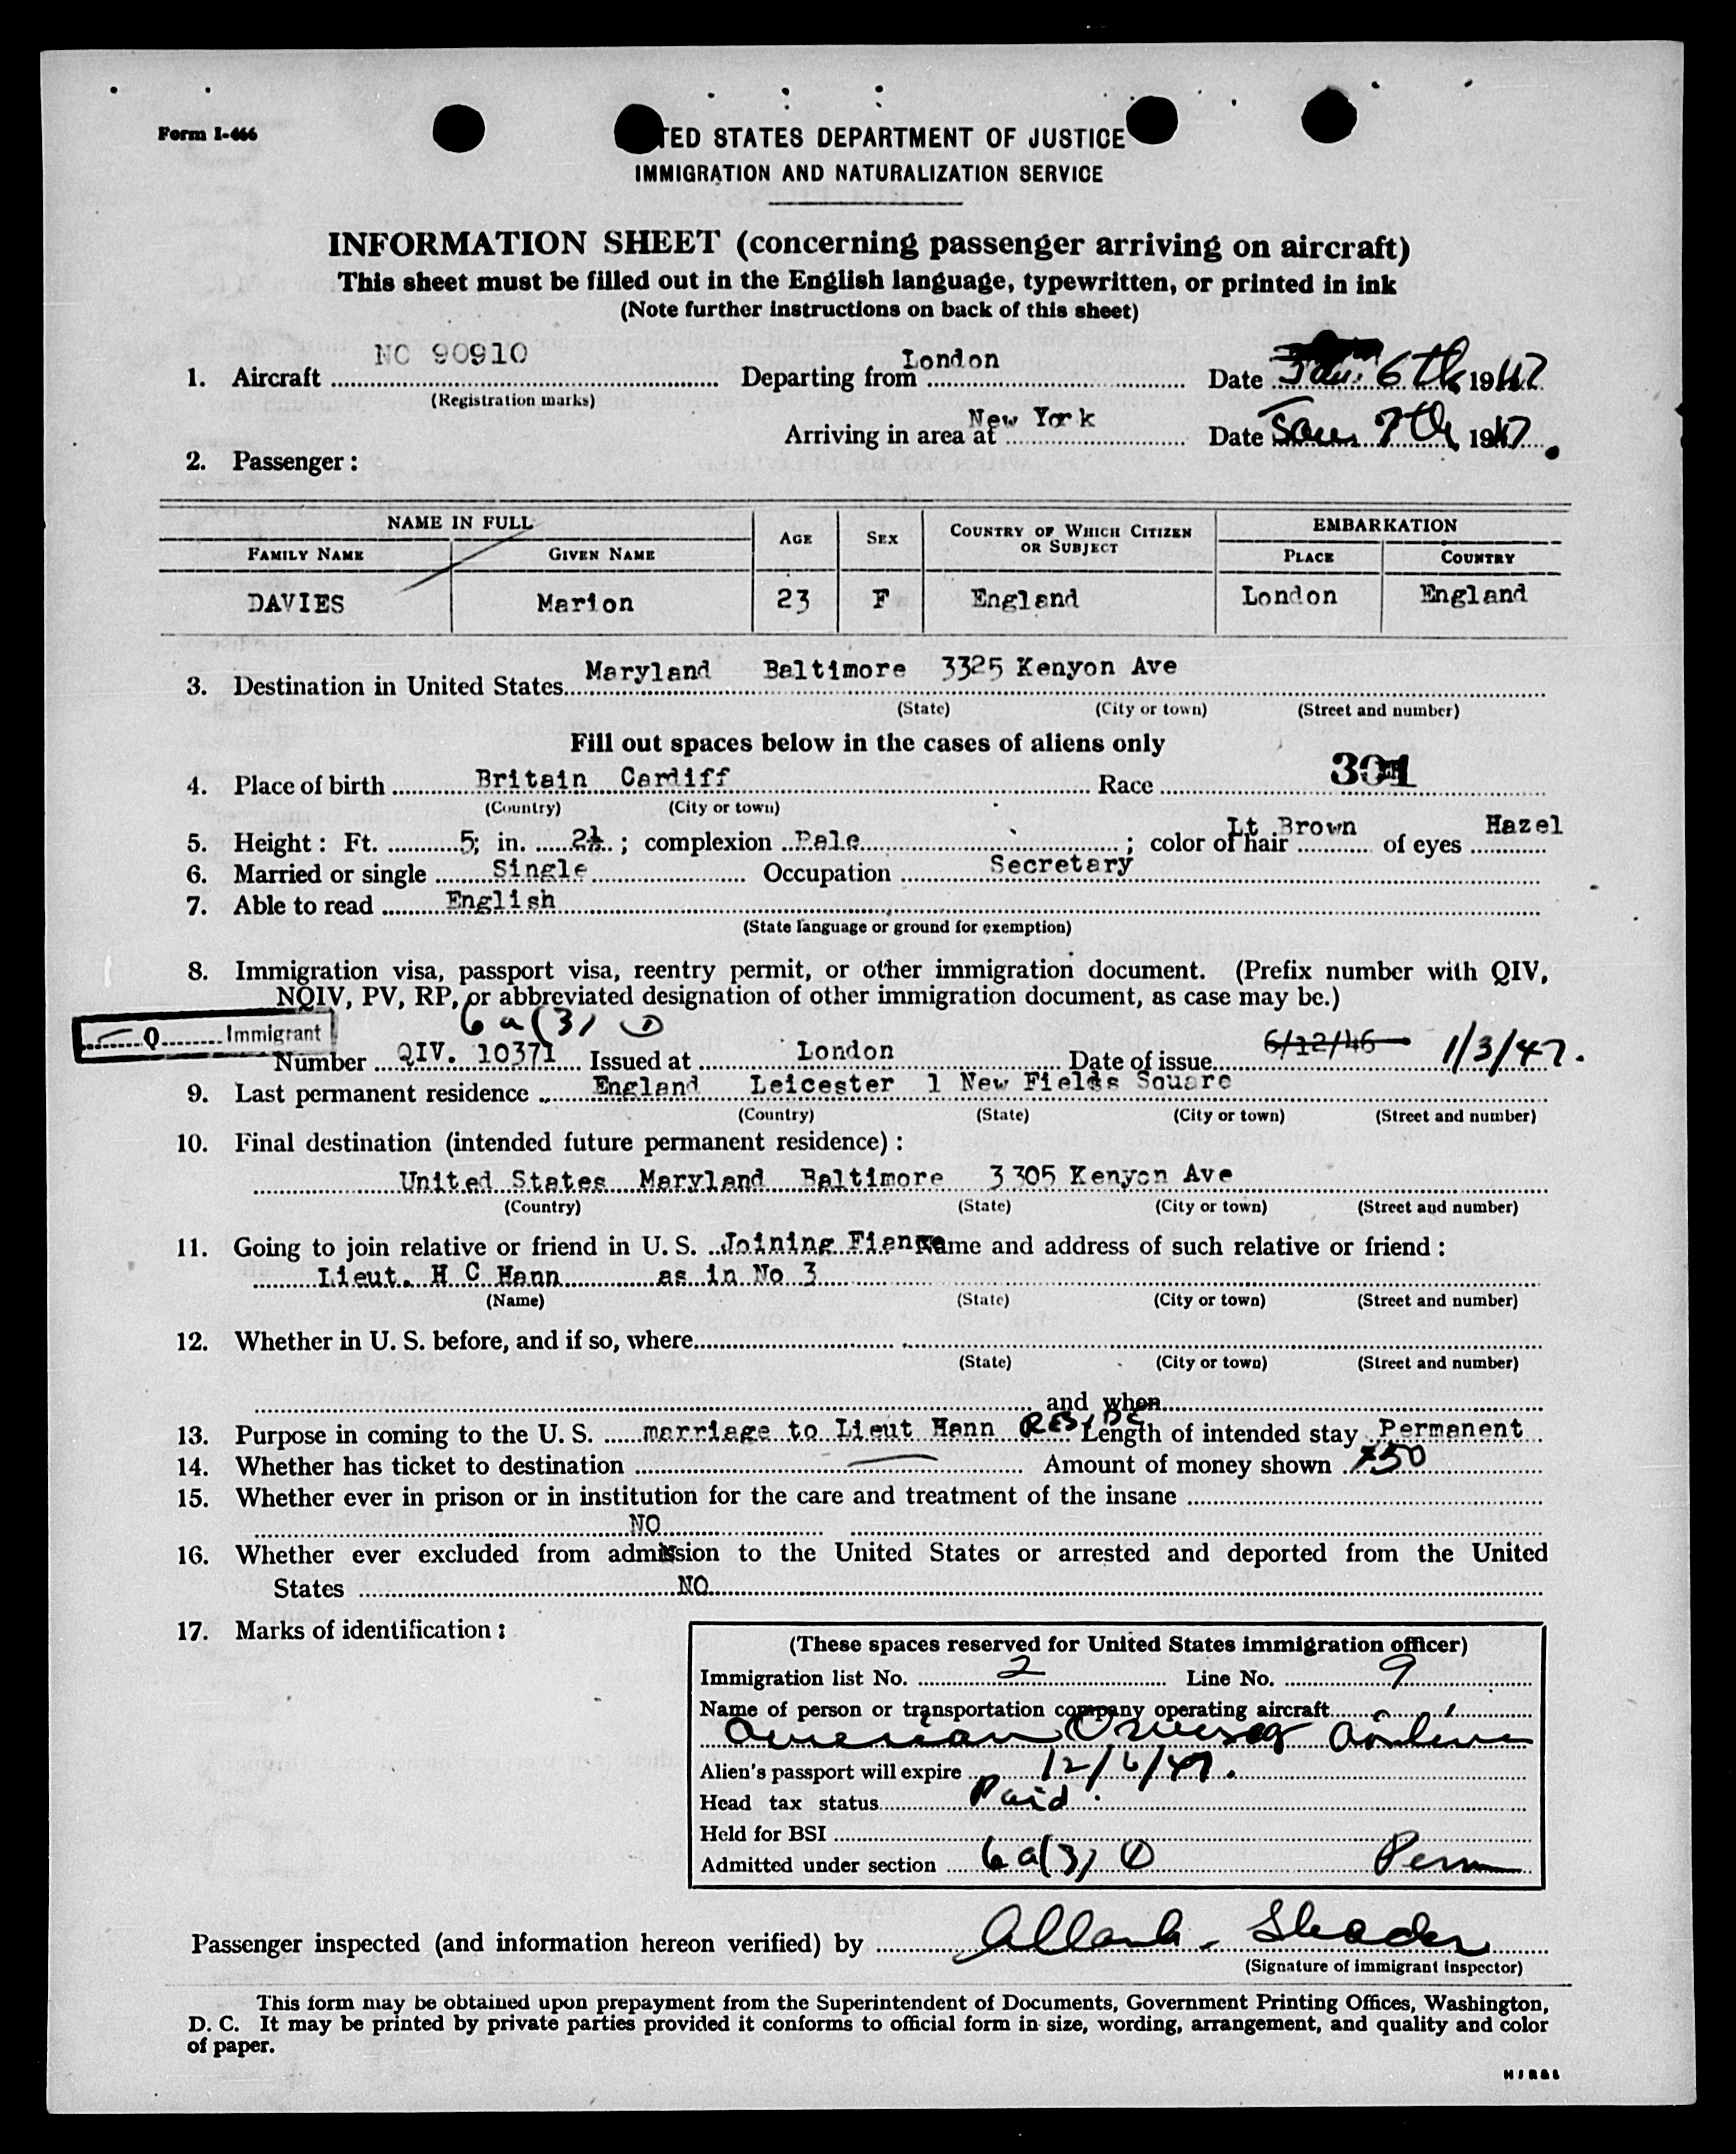 Form I-466
TED STATES DEPARTMENT OF JUSTICE
IMMIGRATION AND NATURALIZATION SERVICE
INFORMATION SHEET (concerning passenger arriving on aircraft)
This sheet must be filled out in the English language, typewritten, or printed in ink
(Note further instructions on back of this sheet)
1. Aircraft NC 90910 Departing from London Date Jan. 6th 1947
(Registration marks)
Arriving in area at New York Date Jan 7th, 1947.
2. Passenger:
NAME IN FULL AGE SEX COUNTRY OF WHICH CITIZEN OR SUBJECT EMBARKATION
FAMILY NAME GIVEN NAME PLACE COUNTRY
DAVIES Marion 23 F England London England
3. Destination in United States Maryland Baltimore 3325 Kenyon Ave
(State) (City or town) (Street and number)
Fill out spaces below in the cases of aliens only
4. Place of birth Britain Cardiff Race
(Country) (City or town)
5. Height: Ft. 5; in. 2½; complexion Pale; color of hair Lt Brown of eyes Hazel
6. Married or single Single Occupation Secretary
7. Able to read English
(State language or ground for exemption)
8. Immigration visa, passport visa, reentry permit, or other immigration document. (Prefix number with QIV,
NQIV, PV, RP, or abbreviated designation of other immigration document, as case may be.)
Q Immigrant 6a(3) D
Number QIV. 10371 Issued at London Date of issue 6/12/46 1/3/47.
9. Last permanent residence England Leicester 1 New Fields Square
(Country) (State) (City or town) (Street and number)
10. Final destination (intended future permanent residence):
United States Maryland Baltimore 3305 Kenyon Ave
(Country) (State) (City or town) (Street and number)
11. Going to join relative or friend in U. S. Joining Fiance Name and address of such relative or friend:
Lieut. H C Hann as in No 3
(Name) (State) (City or town) (Street and number)
12. Whether in U. S. before, and if so, where
(State) (City or town) (Street and number)
and when
13. Purpose in coming to the U. S. marriage to Lieut Hann RESIDE Length of intended stay Permanent
14. Whether has ticket to destination Amount of money shown 50
15. Whether ever in prison or in institution for the care and treatment of the insane
NO
16. Whether ever excluded from admission to the United States or arrested and deported from the United
States NO
17. Marks of identification:
(These spaces reserved for United States immigration officer)
Immigration list No. 2 Line No. 9
Name of person or transportation company operating aircraft
American Overseas Airlines
Alien's passport will expire 12/6/47.
Head tax status Paid.
Held for BSI
Admitted under section 6a(3) D Perm
Passenger inspected (and information hereon verified) by
(Signature of immigrant inspector)
This form may be obtained upon prepayment from the Superintendent of Documents, Government Printing Offices, Washington,
D. C. It may be printed by private parties provided it conforms to official form in size, wording, arrangement, and quality and color
of paper.